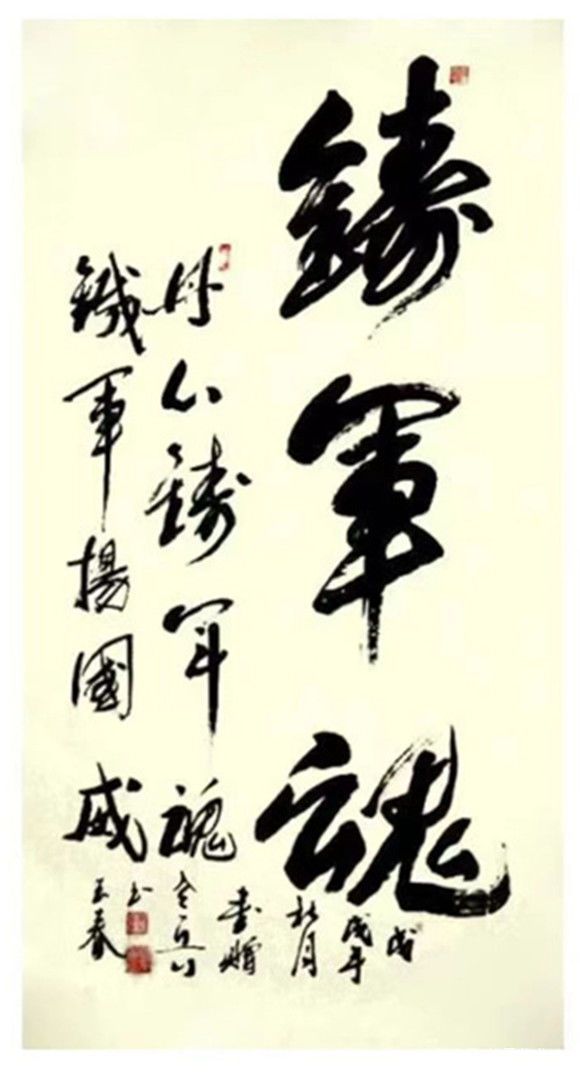 鑄軍魂
丹心鑄軍魂
鐵軍揚國威
戊
戌年
秋月
書贈